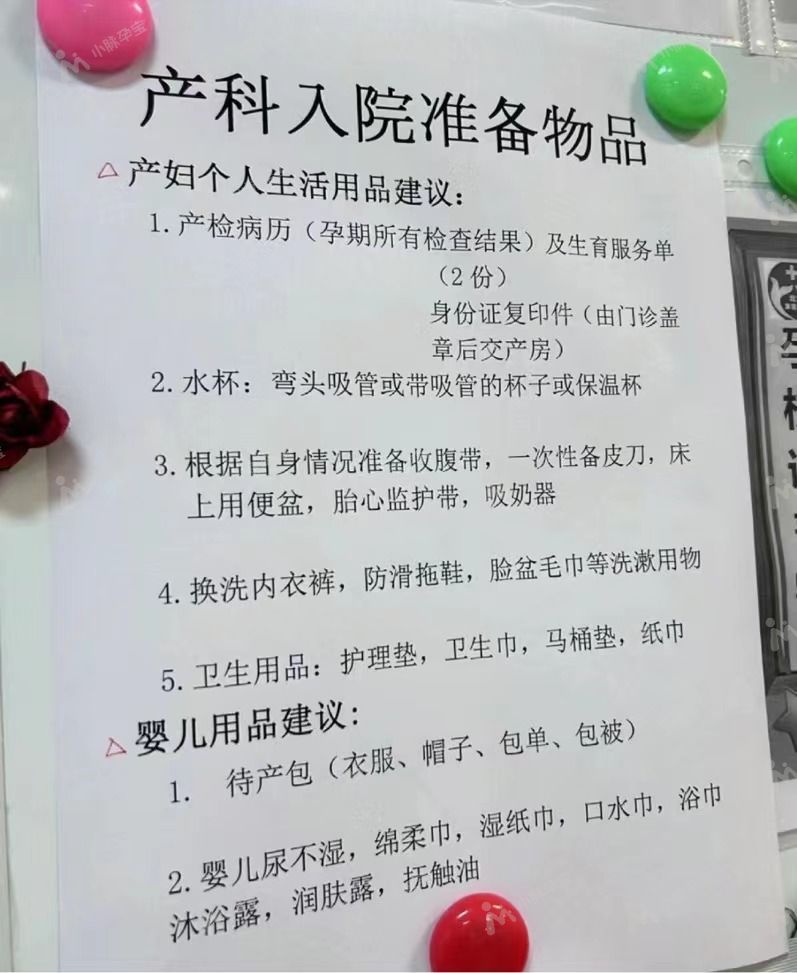 小脉孕宝
产科入院准备物品
△产妇个人生活用品建议：
1.产检病历（孕期所有检查结果）及生育服务单
（2份）
身份证复印件（由门诊盖
章后交产房）
2.水杯：弯头吸管或带吸管的杯子或保温杯
3.根据自身情况准备收腹带，一次性备皮刀，床
上用便盆，胎心监护带，吸奶器
4.换洗内衣裤，防滑拖鞋，脸盆毛巾等洗漱用物
5.卫生用品：护理垫，卫生巾，马桶垫，纸巾
△婴儿用品建议：
1. 待产包（衣服、帽子、包单、包被）
2.婴儿尿不湿，绵柔巾，湿纸巾，口水巾，浴巾
沐浴露，润肤露，抚触油